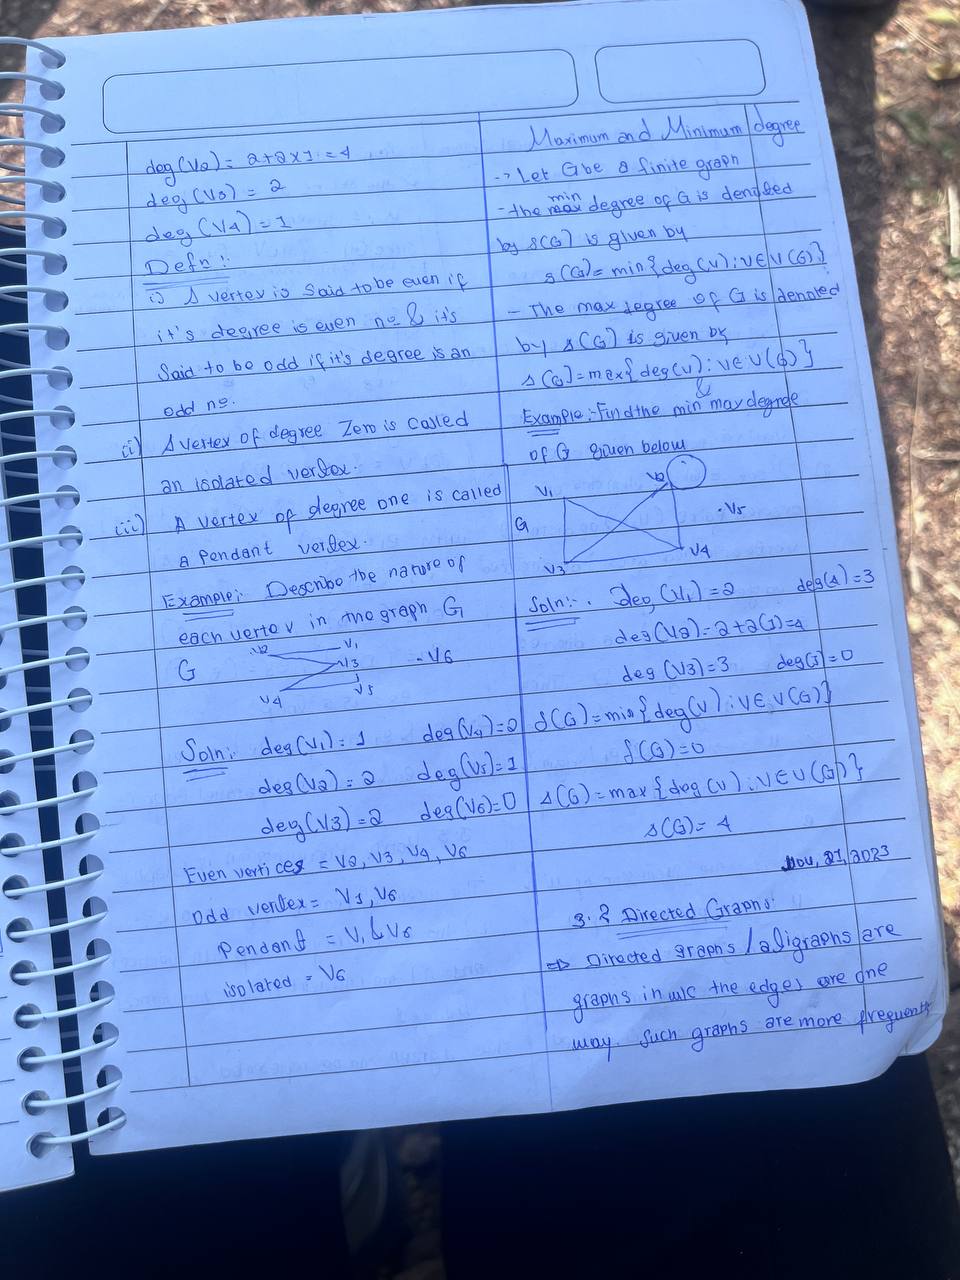 deg(V2) = 2+2x1 = 4
deg(V3) = 2
deg(V4) = 1
Defn:
i) A vertex is said to be even if
it's degree is even no & it's
Said to be odd if it's degree is an
odd no.
ii) A vertex of degree Zero is called
an isolated vertex.
iii) A vertex of degree one is called
a Pendant vertex.
Example: Describe the nature of
each vertex in the graph G
G V2 V1 V3 V4 V5 .V6
Soln: deg(V1) = 1 deg(V4) = 2
deg(V2) = 2 deg(V5) = 1
deg(V3) = 2 deg(V6) = 0
Even vertices = V2, V3, V4, V6
odd vertex = V1, V6
Pendant = V1 & V6
isolated = V6
Maximum and Minimum degree
-> Let G be a finite graph
min
- the max degree of G is denoted
by s(G) is given by
s(G) = min{deg(v) : v∈V(G)}
- The max degree of G is denoted
by Δ(G) is given by
Δ(G) = max{deg(v) : v∈V(G)}
&
Example:- Find the min max degree
of G given below
G V1 V2 V3 V4 .V5
Soln:. deg(V1) = 2 deg(4) = 3
deg(V2) = 2+2(1) = 4
deg(V3) = 3 deg(5) = 0
δ(G) = min{deg(v) : v∈V(G)}
δ(G) = 0
Δ(G) = max{deg(v) : v∈V(G)}
Δ(G) = 4
Nov, 21, 2023
3.2 Directed Graphs:
=> Directed graphs / adigraphs are
graphs in w/c the edges are one
way. Such graphs are more frequent